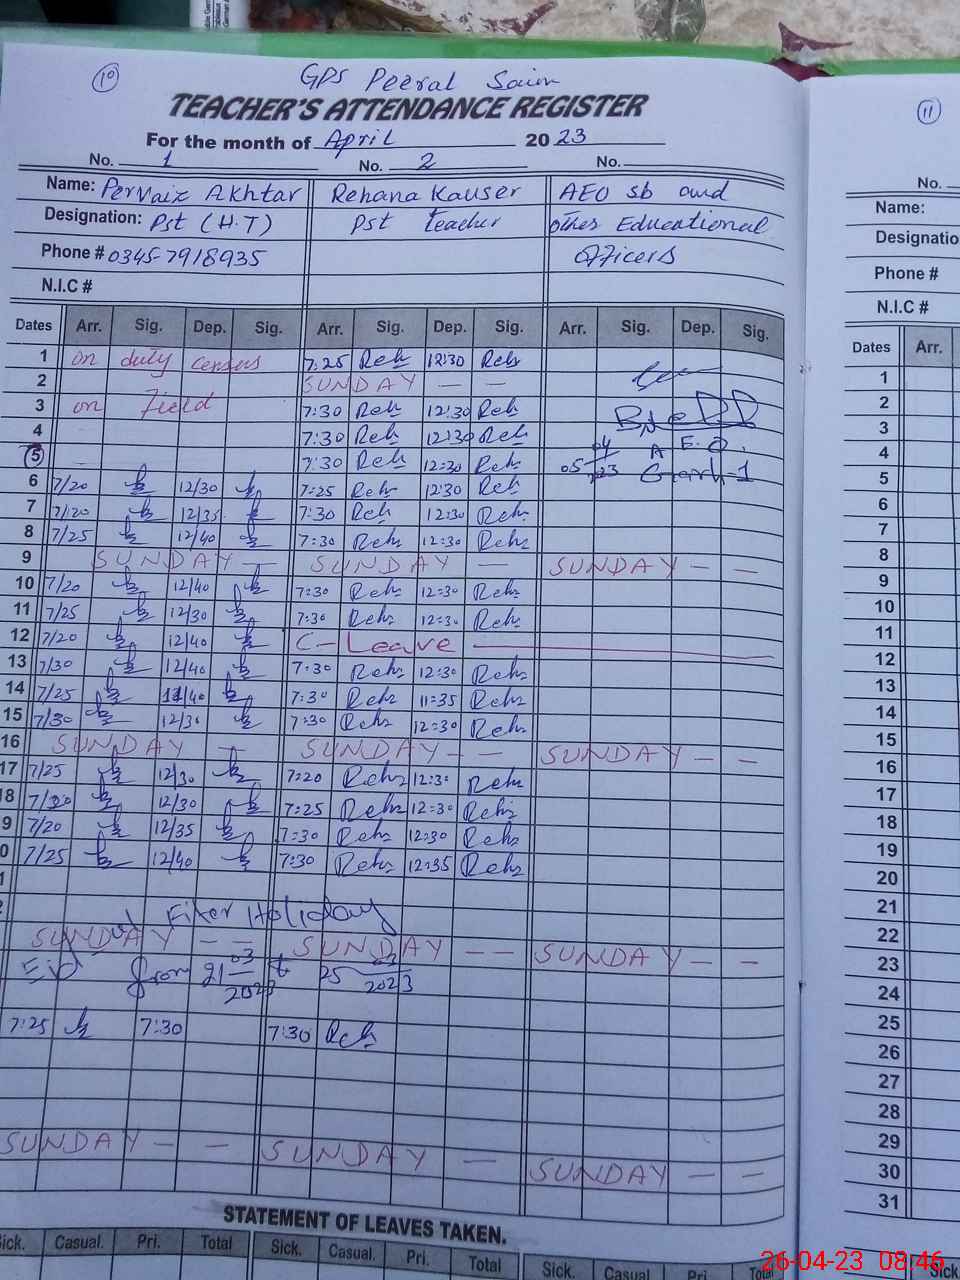 10
GPS Peeral
TEACHER'S ATTENDANCE REGISTER
For the month of April 2023
No. 1 No. 2 No.
Name: Pervaiz Akhtar Rehana Kauser AEO sb and
Designation: Pst (H.T) Pst Teacher other Educational
Phone # 0345-7918935 Officers
N.I.C #
Dates Arr. Sig. Dep. Sig. Arr. Sig. Dep. Sig. Arr. Sig. Dep. Sig.
1 on duty census 7:25 Reh 12:30 Reh
2 SUNDAY — —
3 on Field 7:30 Reh 12:30 Reh
4 7:30 Reh 12:30 Reh A.E.O.
5 7:30 Reh 12:30 Reh 05 04 23
6 7/20 12/30 7:25 Reh 12:30 Reh
7 7/20 12/35 7:30 Reh 12:30 Reh
8 7/25 12/40 7:30 Reh 12:30 Reh
9 SUNDAY — SUNDAY — SUNDAY — —
10 7/20 12/40 7:30 Reh 12:30 Reh
11 7/25 12/30 7:30 Reh 12:30 Reh
12 7/20 12/40 C- Leave
13 7/30 12/40 7:30 Reh 12:30 Reh
14 7/25 11/40 7:30 Reh 11:35 Reh
15 7/30 12/30 7:30 Reh 12:30 Reh
16 SUNDAY — SUNDAY — — SUNDAY — —
17 7/25 12/30 7:20 Reh 12:30 Reh
18 7/20 12/30 7:25 Reh 12:30 Reh
9 7/20 12/35 7:30 Reh 12:30 Reh
0 7/25 12/40 7:30 Reh 12:35 Reh
1
2 Fiter Holiday
SUNDAY — — SUNDAY — — SUNDAY — —
Eid from 21 03 2023 to 25 03 2023
7:25 7:30 7:30 Reh
SUNDAY — — SUNDAY — SUNDAY — —
STATEMENT OF LEAVES TAKEN.
Sick. Casual. Pri. Total Sick. Casual. Pri. Total Sick. Casual Pri. Total
11
No.
Name:
Designatio
Phone #
N.I.C #
Dates Arr.
1
2
3
4
5
6
7
8
9
10
11
12
13
14
15
16
17
18
19
20
21
22
23
24
25
26
27
28
29
30
31
Sick
26-04-23 08:46